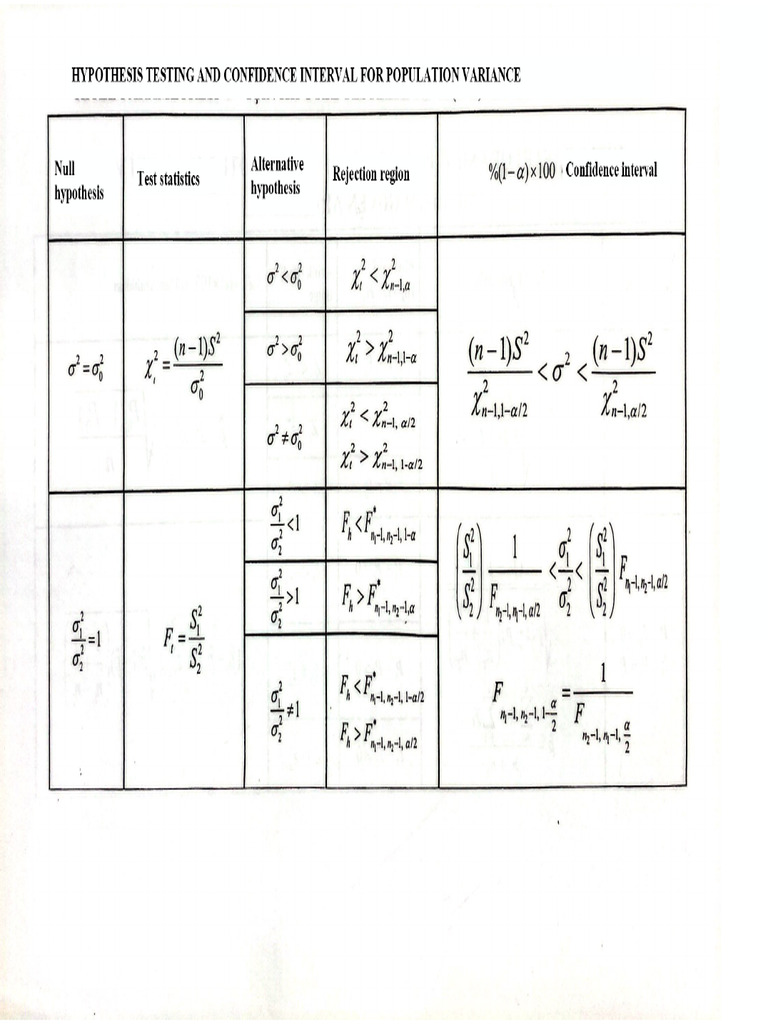 HYPOTHESIS TESTING AND CONFIDENCE INTERVAL FOR POPULATION VARIANCE
Null hypothesis
Test statistics
Alternative hypothesis
Rejection region
%(1−α)×100 Confidence interval
σ² = σ₀²
χₜ² = (n−1)S² / σ₀²
σ² < σ₀²
χₜ² < χ²ₙ₋₁,α
σ² > σ₀²
χₜ² > χ²ₙ₋₁,₁₋α
σ² ≠ σ₀²
χₜ² < χ²ₙ₋₁, α/2
χₜ² > χ²ₙ₋₁, 1-α/2
(n−1)S² / χ²ₙ₋₁,₁₋α/2 < σ² < (n−1)S² / χ²ₙ₋₁,α/2
σ₁²/σ₂² = 1
Fₜ = S₁²/S₂²
σ₁²/σ₂² < 1
F_h < F*_{n₁−1, n₂−1, 1−α}
σ₁²/σ₂² > 1
F_h > F*_{n₁−1, n₂−1, α}
σ₁²/σ₂² ≠ 1
F_h < F*_{n₁−1, n₂−1, 1−α/2}
F_h > F*_{n₁−1, n₂−1, α/2}
(S₁²/S₂²) 1/F_{n₂−1, n₁−1, α/2} < σ₁²/σ₂² < (S₁²/S₂²) F_{n₁−1, n₂−1, α/2}
F_{n₁−1, n₂−1, 1−α/2} = 1/F_{n₂−1, n₁−1, α/2}